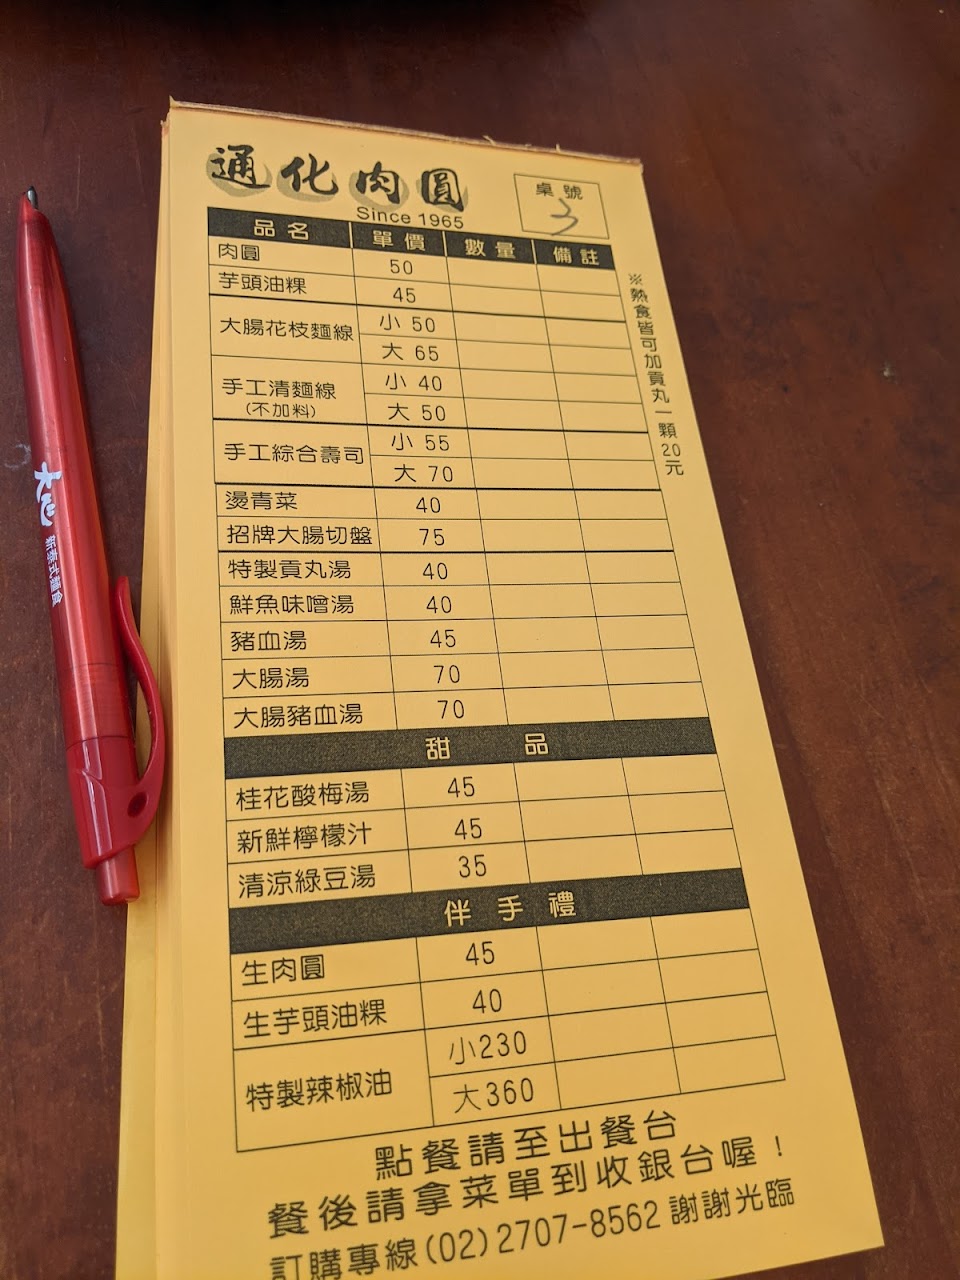 通化肉圓
Since 1965
桌號
3
品名 單價 數量 備註
肉圓 50
芋頭油粿 45
大腸花枝麵線 小 50
大 65
手工清麵線 小 40
(不加料) 大 50
手工綜合壽司 小 55
大 70
燙青菜 40
招牌大腸切盤 75
特製貢丸湯 40
鮮魚味噌湯 40
豬血湯 45
大腸湯 70
大腸豬血湯 70
甜品
桂花酸梅湯 45
新鮮檸檬汁 45
清涼綠豆湯 35
伴手禮
生肉圓 45
生芋頭油粿 40
特製辣椒油 小230
大360
※熱食皆可加貢丸一顆20元
點餐請至出餐台
餐後請拿菜單到收銀台喔！
訂購專線(02)2707-8562 謝謝光臨
新泰式麵食